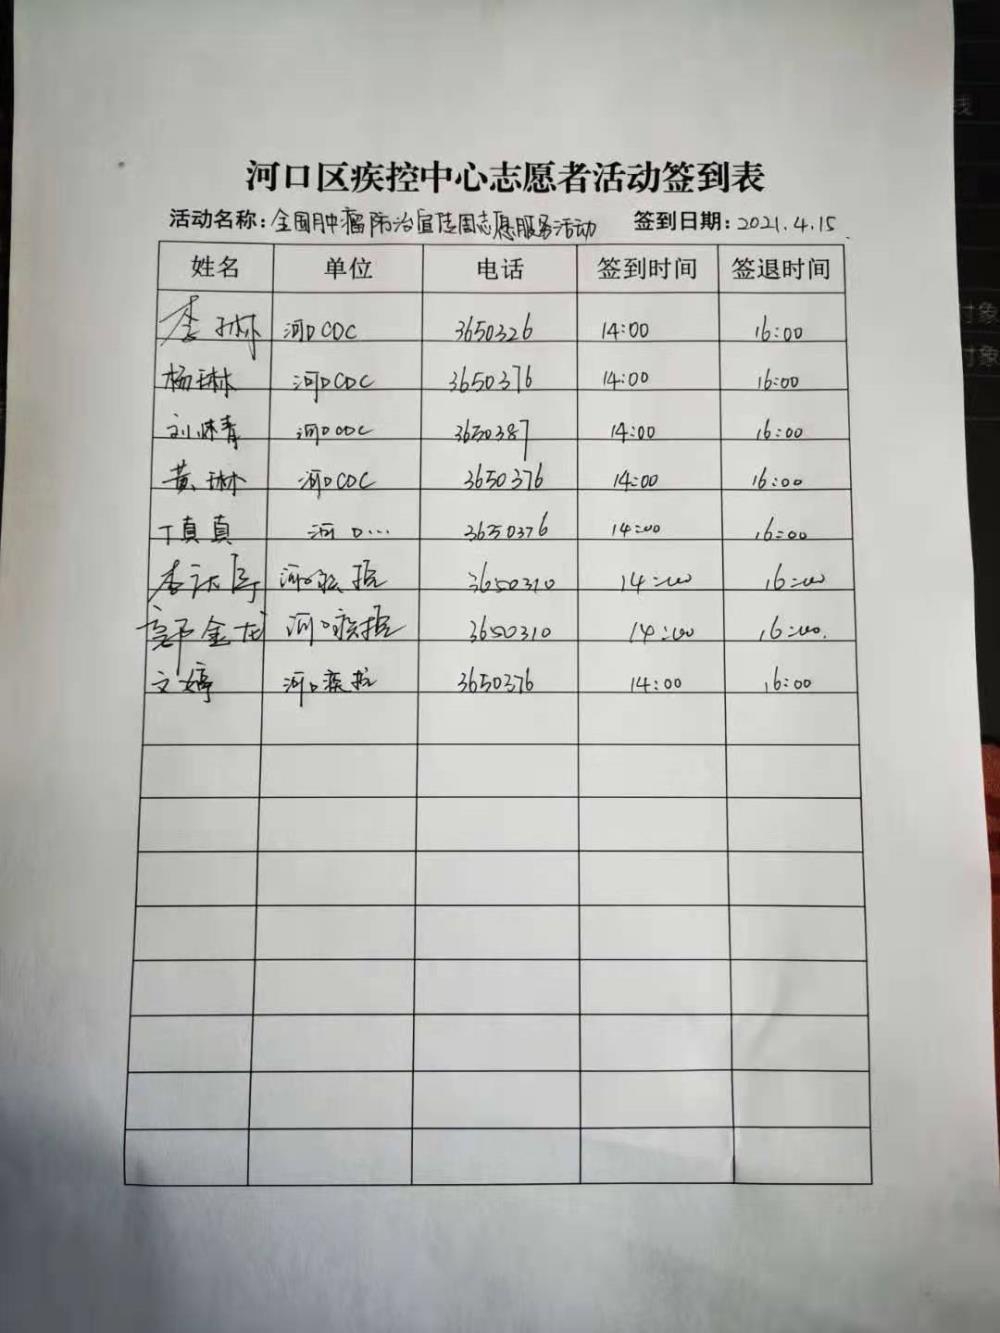 河口区疾控中心志愿者活动签到表
活动名称:全国肿瘤防治宣传周志愿服务活动 签到日期:2021.4.15.
姓名 单位 电话 签到时间 签退时间
李琳 河口CDC 3650326 14:00 16:00
杨琳 河口CDC 3650376 14:00 16:00
刘 青 河口CDC 3650387 14:00 16:00
黄琳 河口CDC 3650376 14:00 16:00
丁真真 河口... 3650376 14:00 16:00
李 河口疾控 3650310 14:00 16:00
郭金龙 河口疾控 3650310 14:00 16:00.
文婷 河口疾控 3650376 14:00 16:00
对象
对象